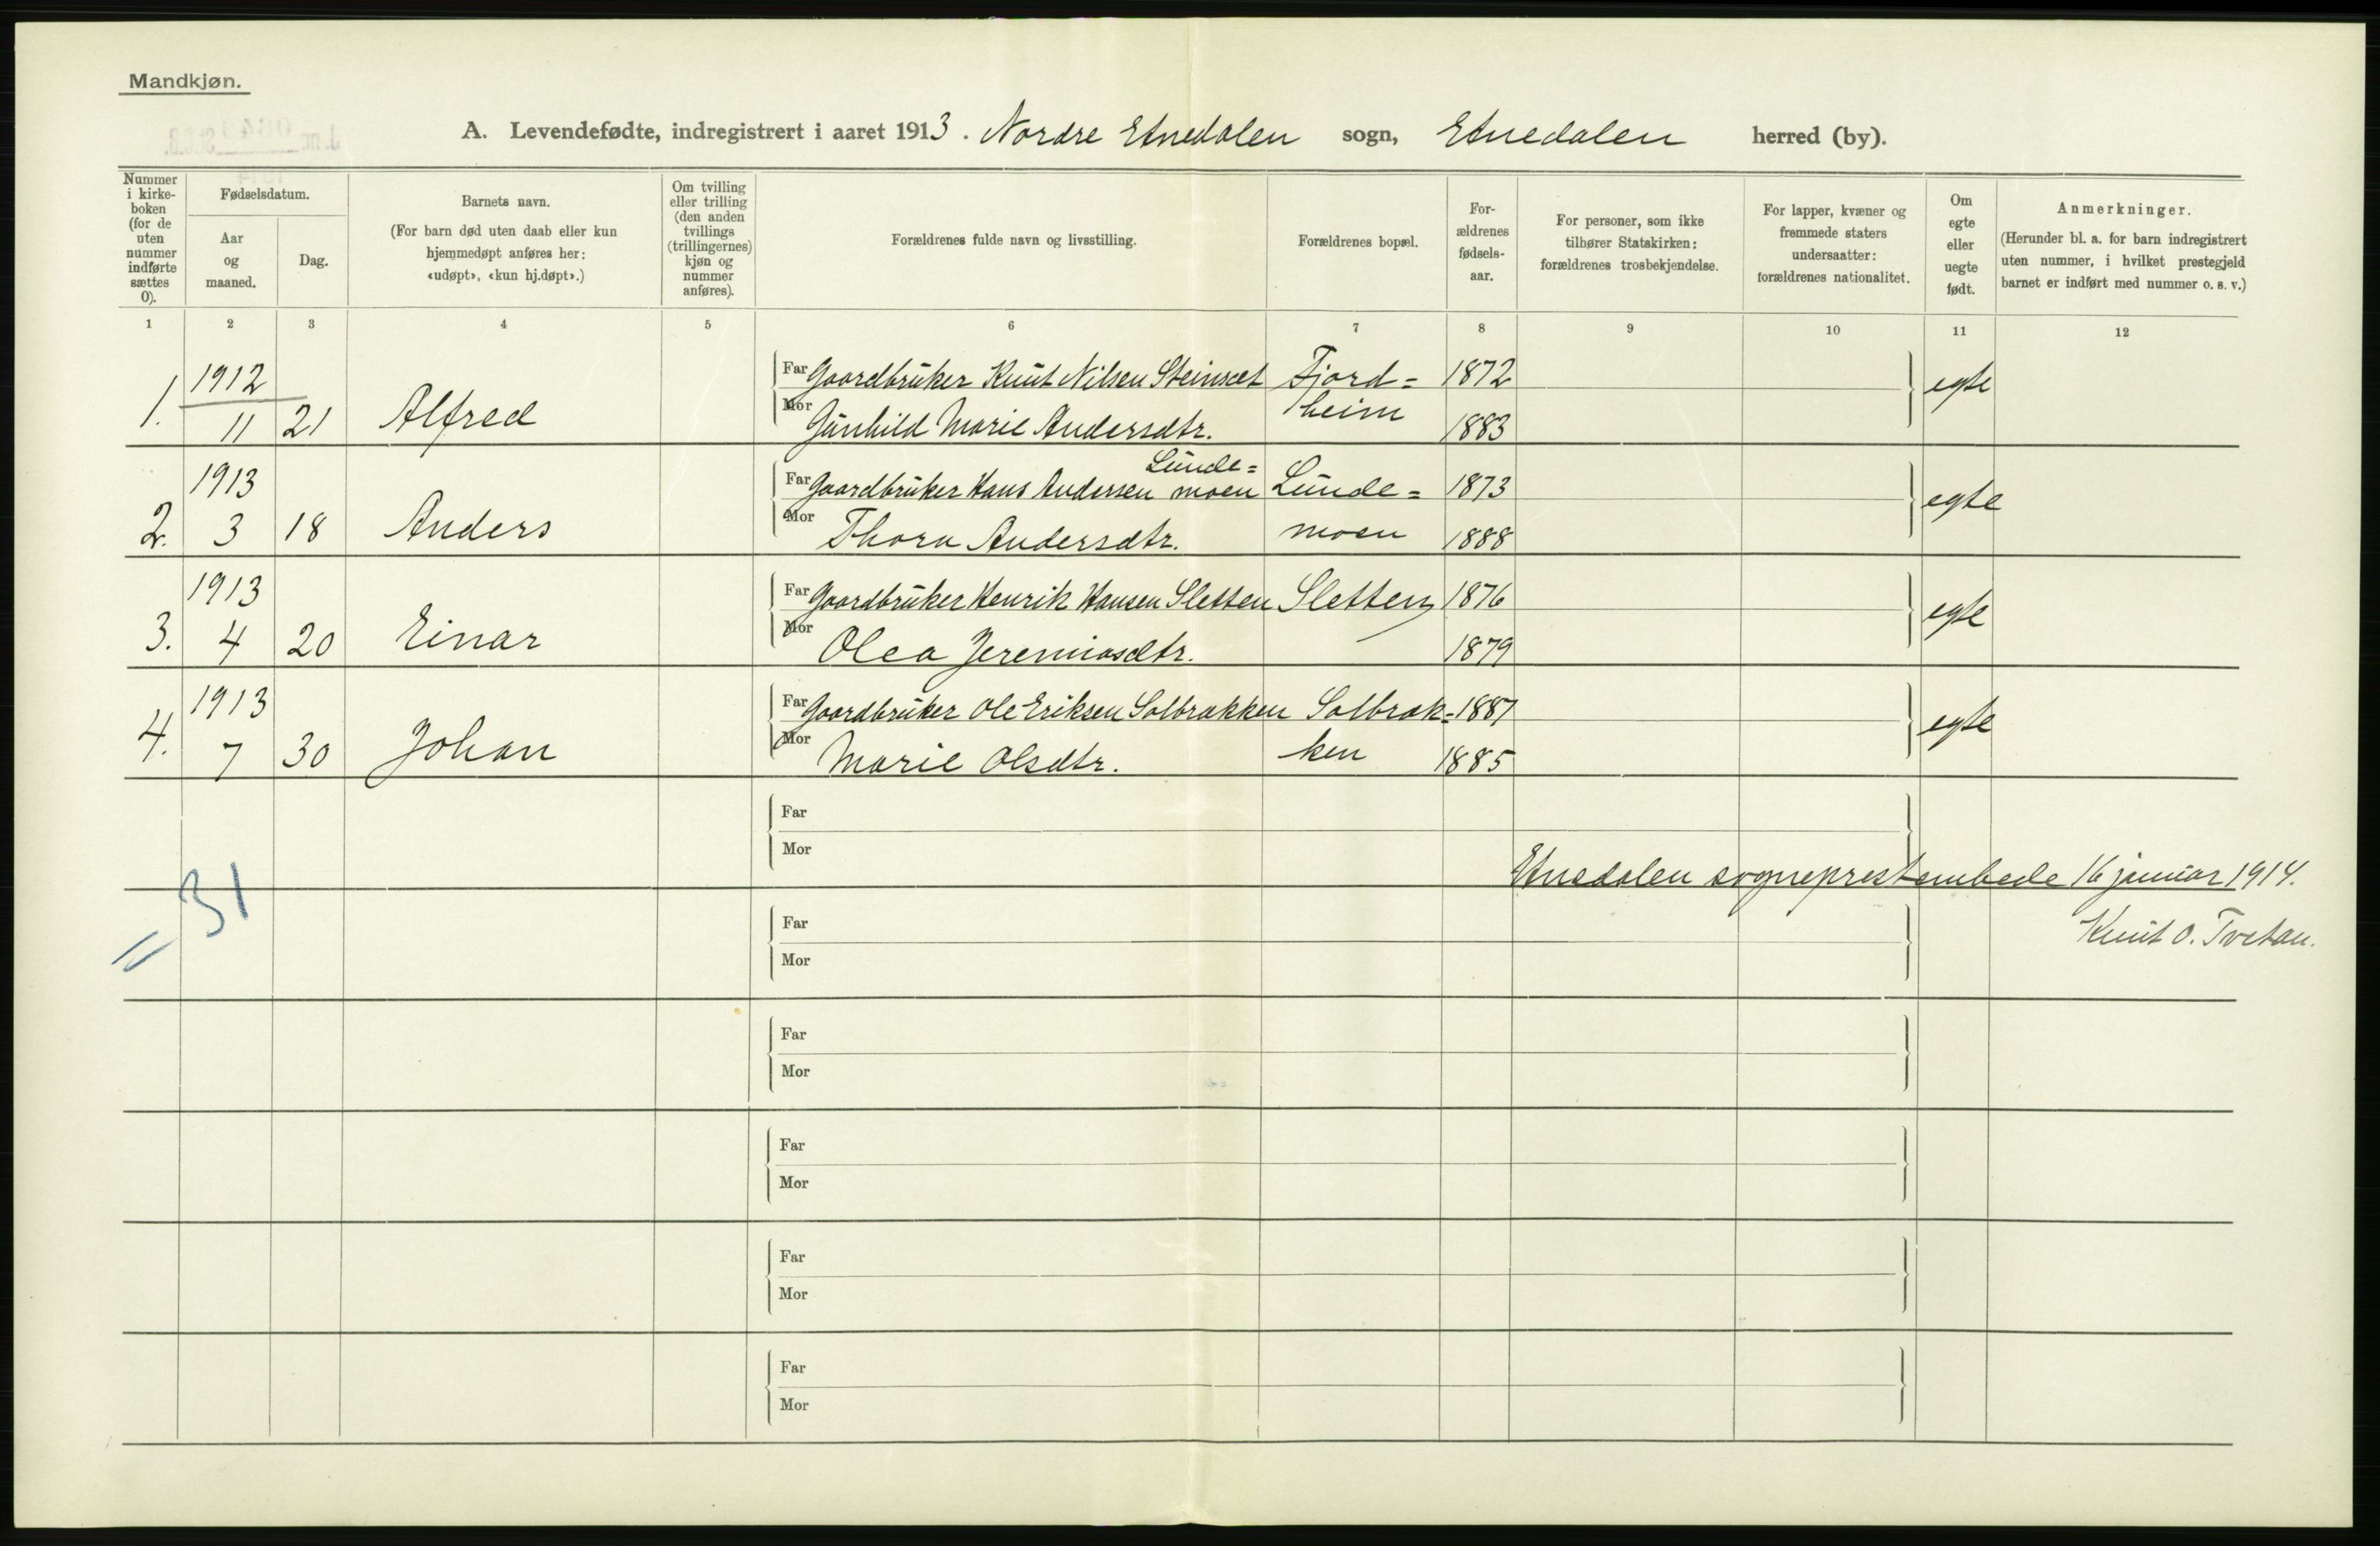 Mandkjøn.
A. Levendefødte, indregistrert i aaret 1913. Nordre Etnedalen sogn, Etnedalen herred (by).
Nummer i kirke-boken (for de uten nummer indførte sættes 0).
Fødselsdatum.
Aar og maaned.
Dag.
Barnets navn.
(For barn død uten daab eller kun hjemmedøpt anføres her: «udøpt», «kun hj.døpt».)
Om tvilling eller trilling (den anden tvillings (trillingernes) kjøn og nummer anføres).
Forældrenes fulde navn og livsstilling.
Forældrenes bopæl.
For-ældrenes fødsels-aar.
For personer, som ikke tilhører Statskirken: forældrenes trosbekjendelse.
For lapper, kvæner og fremmede staters undersaatter: forældrenes nationalitet.
Om egte eller uegte født.
Anmerkninger.
(Herunder bl. a. for barn indregistrert uten nummer, i hvilket prestegjeld barnet er indført med nummer o. s. v.)
1 2 3 4 5 6 7 8 9 10 11 12
1912
Far Gaardbruker Knut Nilsen Steinsæt Fjord= 1872 egte
1. 11 21 Alfred
Mor Gunhild Marie Andersdtr. heim 1883
1913
Lunde=
Far Gaardbruker Hans Andersen moen Lunde= 1873 egte
2. 3 18 Anders
Mor Thora Andersdtr. moen 1888
1913
Far Gaardbruker Henrik Hansen Sletten Sletten 1876 egte
3. 4 20 Einar
Mor Olea Jeremiasdtr. 1879
1913
Far Gaardbruker Ole Eriksen Solbrakken Solbrak= 1887 egte
4. 7 30 Johan
Mor Marie Olsdtr. ken 1885
Far
Mor
Etnedalen sogneprestembede 16 januar 1914.
31
Far
Knut O. Tvetan.
Mor
Far
Mor
Far
Mor
Far
Mor
Far
Mor